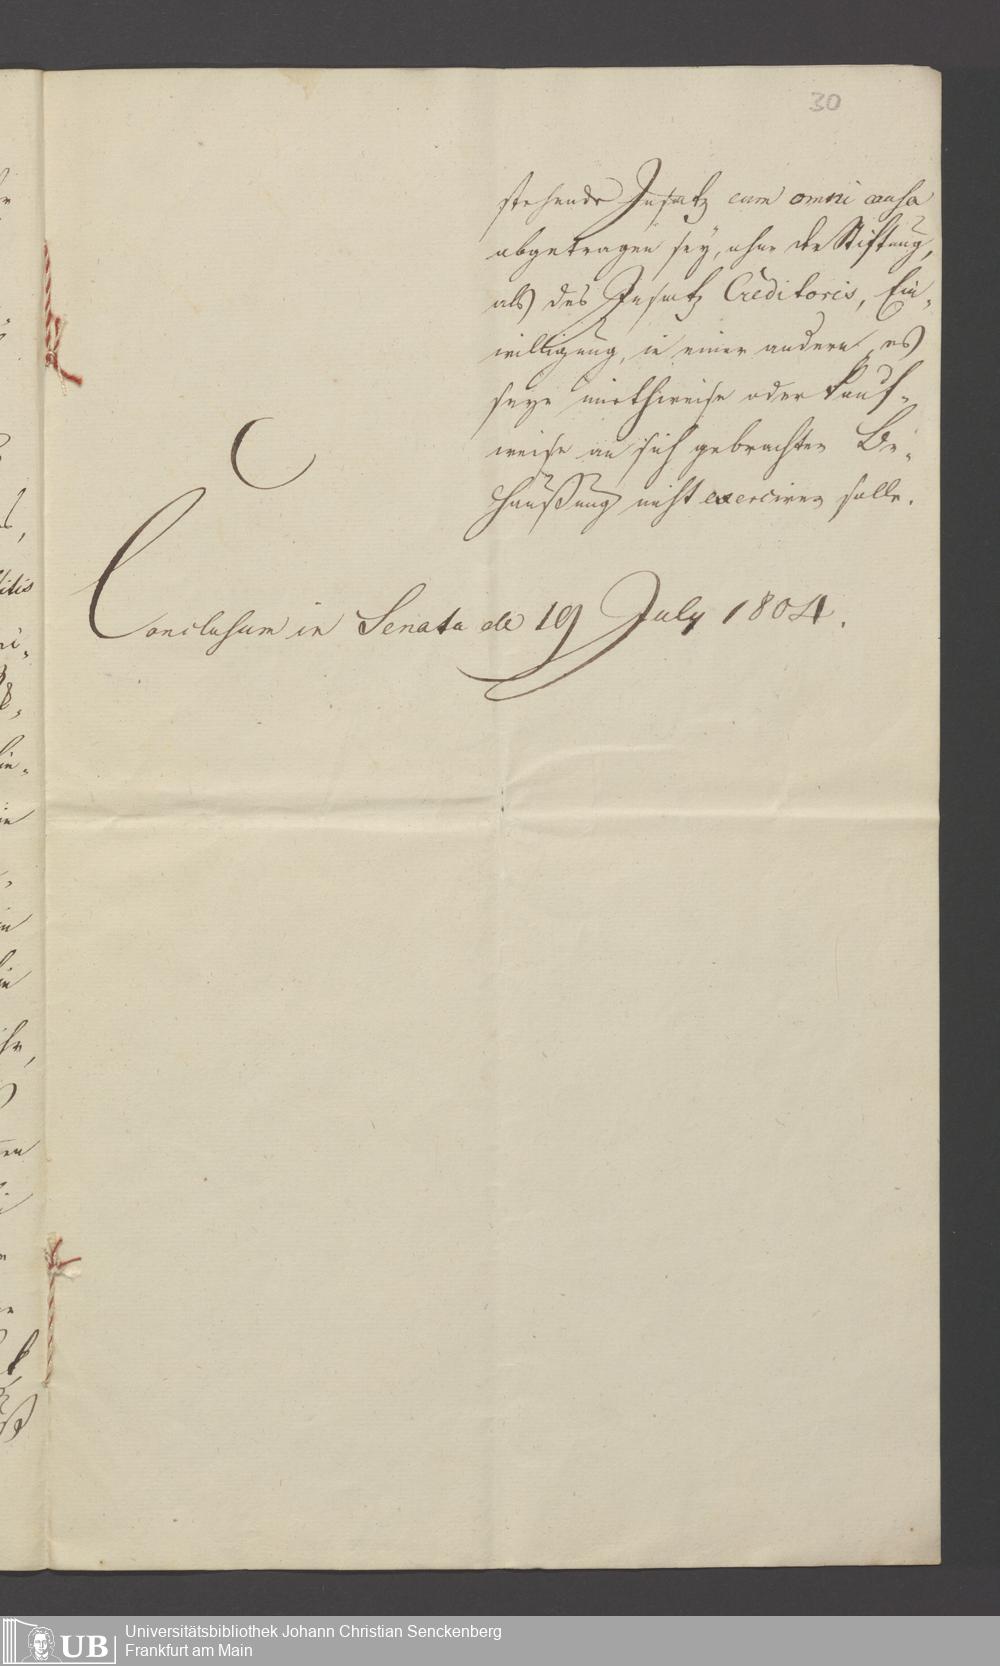 30
stehende Insatz cum omni causa
abgetragen sey, ohne der Stiftung,
als des Insatz Creditoris, Ein„
willigung, in einer andern, es
seye miethweise oder kauf„
weise an sich gebrachten Be„
haußung nicht exerciren solle.
Conclusum in Senatu de 19 July 1804.
UB
Universitätsbibliothek Johann Christian Senckenberg
Frankfurt am Main